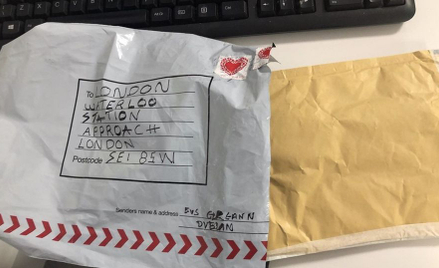 To LONDON
WATERLOO
STATION
APPROACH
LONDON
Postcode SE1 8SW
Senders name & address BUS
DUBLAN